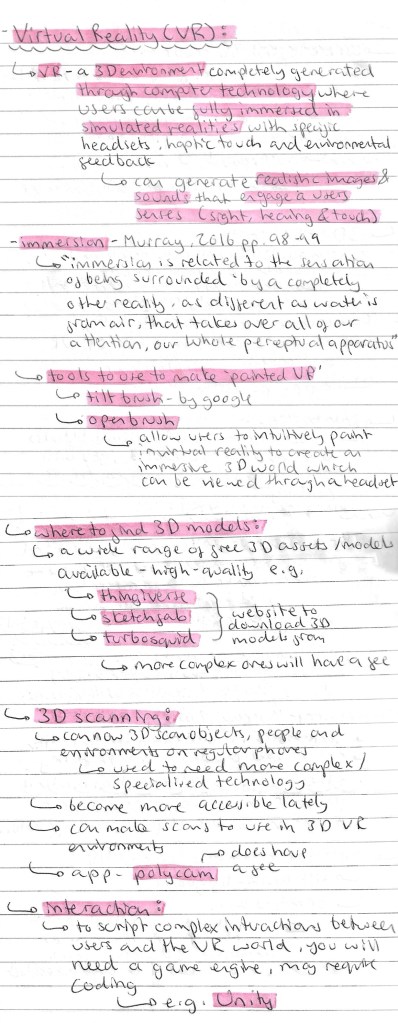 - Virtual Reality (VR):
↳ VR - a 3D environment completely generated
through compute technology where
users can be fully immersed in
simulated realities with specific
headsets, haptic touch and environmental
feedback
↳ can generate realistic images &
sounds that engage a users
senses (sight, hearing & touch)
- immersion - Murray, 2016 pp. 98-99
↳ "immersion is related to the sensation
of being surrounded "by a completely
other reality, as different as water is
from air, that takes over all of our
attention, our whole perceptual apparatus"
↳ tools to use to make 'painted VR'
↳ tilt brush - by google
↳ openbrush
↳ allow users to intuitively paint
in virtual reality to create an
immersive 3D world which
can be viewed through a headset
↳ where to find 3D models:
↳ a wide range of free 3D assets / models
available - high-quality e.g.
↳ thingiverse
↳ sketchfab
↳ turbosquid
website to
download 3D
models from
↳ more complex ones will have a fee
↳ 3D scanning:
↳ can now 3D scan objects, people and
environments on regular phones
↳ used to need more complex /
specialised technology
↳ become more accessible lately
↳ can make scans to use in 3D VR
environments
↳ app - polycam
→ does have
a fee
↳ interaction:
↳ to script complex interactions between
users and the VR world, you will
need a game engine, may require
coding
↳ e.g. Unity